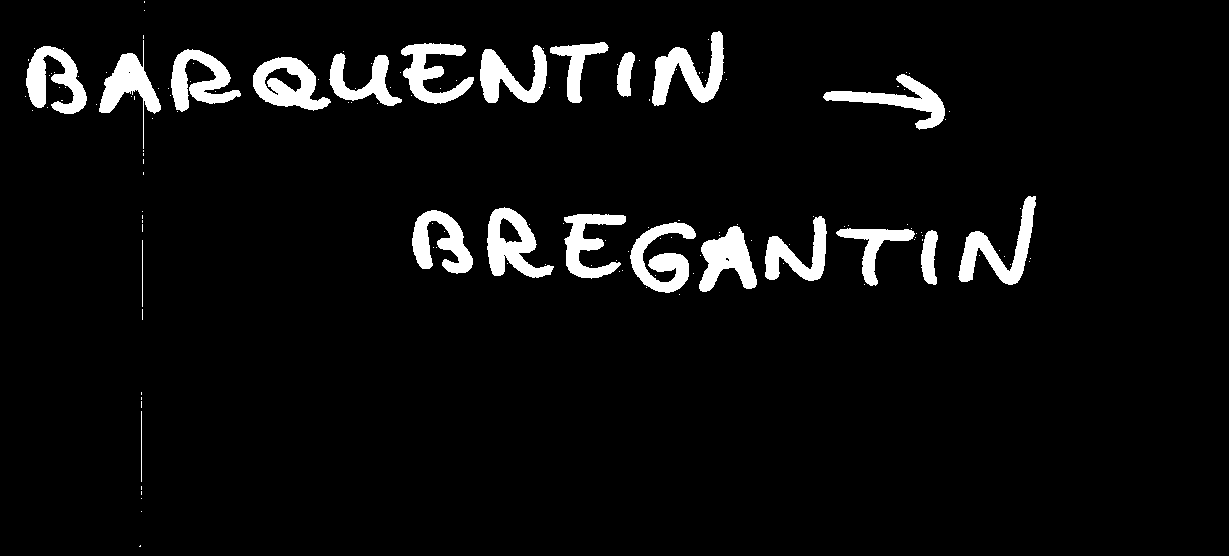 BARQUENTIN →
BREGANTIN